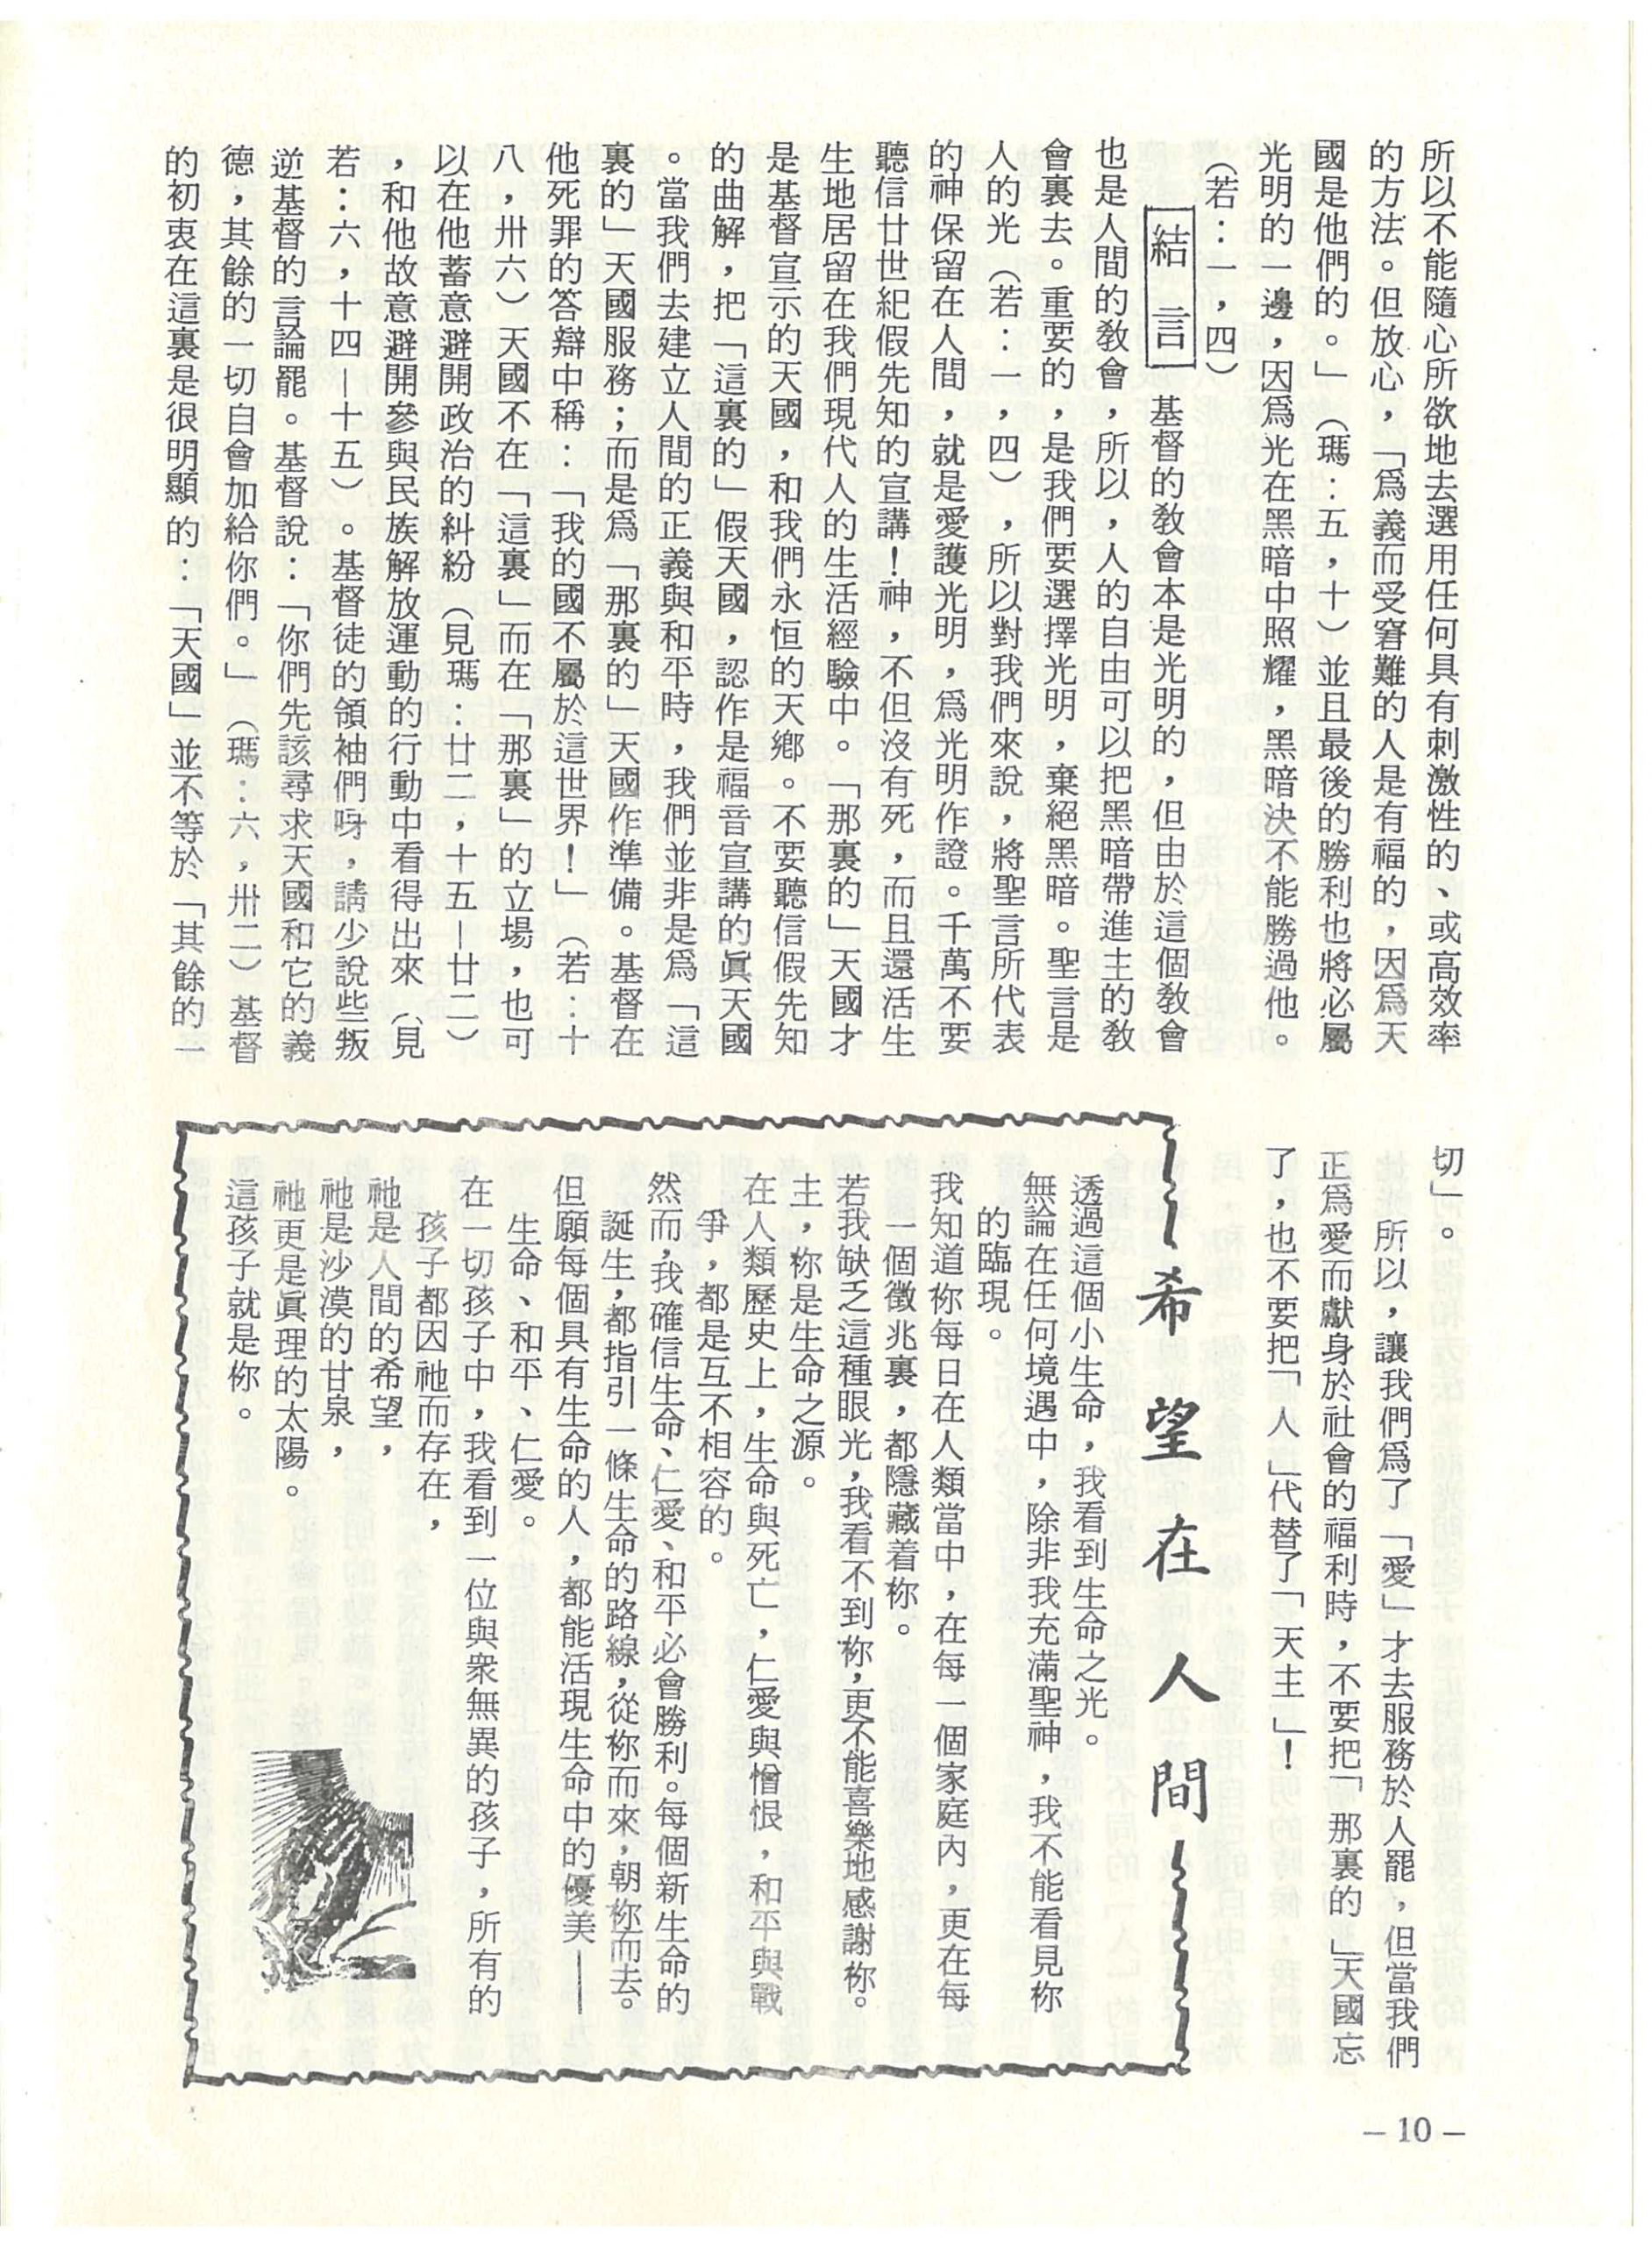 所以不能隨心所欲地去選用任何具有刺激性的、或高效率
的方法。但放心，「爲義而受窘難的人是有福的，因爲天
國是他們的。」（瑪：五，十）並且最後的勝利也將必屬
光明的一邊，因爲光在黑暗中照耀，黑暗決不能勝過他。
（若：一，四）
結言　基督的敎會本是光明的，但由於這個敎會
也是人間的敎會，所以，人的自由可以把黑暗帶進主的敎
會裏去。重要的，是我們要選擇光明，棄絕黑暗。聖言是
人的光（若：一，四），所以對我們來說，將聖言所代表
的神保留在人間，就是愛護光明，爲光明作證。千萬不要
聽信廿世紀假先知的宣講！神，不但沒有死，而且還活生
生地居留在我們現代人的生活經驗中。「那裏的」天國才
是基督宣示的天國，和我們永恒的天鄉。不要聽信假先知
的曲解，把「這裏的」假天國，認作是福音宣講的眞天國
。當我們去建立人間的正義與和平時，我們並非是爲「這
裏的」天國服務；而是爲「那裏的」天國作準備。基督在
他死罪的答辯中稱：「我的國不屬於這世界！」（若：十
八，卅六）天國不在「這裏」而在「那裏」的立場，也可
以在他蓄意避開政治的糾紛（見瑪：廿二，十五—廿二）
，和他故意避開參與民族解放運動的行動中看得出來（見
若：六，十四—十五）。基督徒的領袖們呀，請少說些叛
逆基督的言論罷。基督說：「你們先該尋求天國和它的義
德，其餘的一切自會加給你們。」（瑪：六，卅二）基督
的初衷在這裏是很明顯的：「天國」並不等於「其餘的一
切」。
所以，讓我們爲了「愛」才去服務於人罷，但當我們
正爲愛而獻身於社會的福利時，不要把「那裏的」天國忘
了，也不要把「人」代替了「天主」！
希望在人間
透過這個小生命，我看到生命之光。
無論在任何境遇中，除非我充滿聖神，我不能看見祢
的臨現。
我知道祢每日在人類當中，在每一個家庭內，更在每
一個徵兆裏，都隱藏着祢。
若我缺乏這種眼光，我看不到祢，更不能喜樂地感謝祢。
主，祢是生命之源。
在人類歷史上，生命與死亡，仁愛與憎恨，和平與戰
爭，都是互不相容的。
然而，我確信生命、仁愛、和平必會勝利。每個新生命的
誕生，都指引一條生命的路線，從祢而來，朝祢而去。
但願每個具有生命的人，都能活現生命中的優美——
生命、和平、仁愛。
在一切孩子中，我看到一位與衆無異的孩子，所有的
孩子都因祂而存在，
祂是人間的希望，
祂是沙漠的甘泉，
祂更是眞理的太陽。
這孩子就是祢。
– 10 –